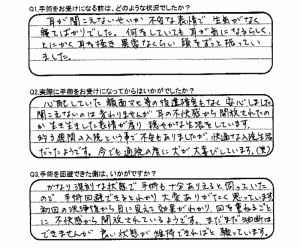 Q1.手術をお受けになる前は、どのような状況でしたか?
耳が聞こえないせいか 不安な表情で 生気がなく
寝てばかりでした。何をしていても耳が気になるらしく、
とにかく耳を掻き 異常なくらい 頭をずっと振ってい
ました。
Q2.実際に手術をお受けになってからはいかがでしたか?
心配していた 顔面マヒ等の後遺障害もなく 安心しました
聞こえないのは変わりませんが 耳の不快感から開放されたの
か 生き生きした表情が戻り 穏やかな生活をしています。
約3週間の入院という事で 不安もありましたが 快適な入院生活
だったようです。今でも通院の度に 犬が大喜びしています。(笑)
Q3.手術を回避できた側は、いかがですか?
かなり深刻な状態で 手術も十分ありえると伺っていた
ので 手術回避できるとわかり 大変ありがたく思っています
初回の洗浄後から 目に見えて効果がわかり 回を重ねるごと
に 不快感から開放されているようです。まだまだ油断は
できませんが 良い状態が 維持できればと 願っています。